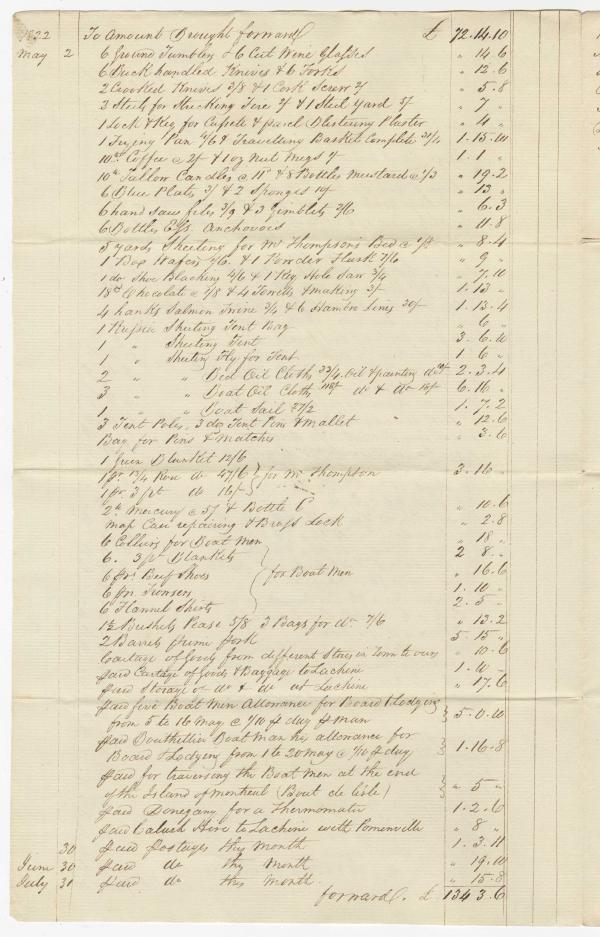 1822 To Amount Brought forward £ 72.14.10
May 2 6 Ground Tumblers & 6 Cut Wine Glasses " 14.6
6 Buck handled Knives & 6 Forks " 12.6
2 Crooked Knives 3/8 & 1 Cork Screw 2/ " 5.8
3 Steels for Striking Fire 2/ & 1 Steel yard 5/ " 7 "
1 Lock & Key for Cassette & parcel Blistering Plaster " 4 "
1 Frying Pan 4/6 & Travelling Basket Complete 31/4 1.15.10
10lb Coffee @ 2/ & 1 oz Nut Megs 1/ 1.1 "
10lb Tallow Candles @ 11d & 8 Bottles Mustard @ 1/3 " 19.2
6 Blue Plates 3/ & 2 Sponges 10/ " 13 "
6 hand saw files 3/9 & 3 Gimblets 2/6 " 6.3
6 Bottles Ess. Anchovies " 11.8
5 yards Sheeting for Mr Thompson's Bed @ 1/8 " 8.4
1 Box Wafers 1/6 & 1 Powder Flask 7/6 " 9 "
1 do Shoe Blacking 4/6 & 1 Key Hole Saw 3/4 " 7.10
18lb Chocolate @ 1/8 & 4 Towells & making 3/ 1.13 "
4 hanks Salmon Twine 3/4 & 6 Hambro Lines 20/ 1.13.4
1 Russia Sheeting Tent Bag " 6 "
1 " Sheeting Tent 3.6.10
1 " Sheeting Fly for Tent 1 6 "
2 " " Bed Oil Cloths 33/4. Oil & painting do 10/ 2.3.4
3 " " Boat Oil Cloths 118/ do & do 18/ 6.16 "
1 " " Boat Sail 27/2 1.7.2
3 Tent Poles, 3 doz Tent Pins & Mallet " 12.6
Bag for Pins & Matches " 3.6
1 Green Blanket 12/6
1 pr 13/4 Rose do 47/6 } for Mr Thompson 3.16 "
1 pr. 3 pt do 16/
2lb Mercury @ 5/ & Bottle 6 " 10.6
Map Case repairing & Brass Lock " 2.8
6 Collars for Boat Men " 18 "
6. 3 pt Blankets 2 8 "
6 prs Beef Shoes } for Boat Men " 16.6
6 prs Trousers 1.10 "
6 Flannel Shirts 2.5 "
1½ Bushels Pease 3/8 3 Bags for do 7/6 " 13.2
2 Barrels prime Pork 5.15 "
Cartage of Goods from different Stores in Town to ours " 10.6
paid Cartage of Goods & Baggage to Lachine 1.10 "
paid Storage of do & do at Lachine " 17.6
paid five Boat Men Allowance for Board & Lodging
from 5 to 16 May @ 1/10 p day p man } 5.0.10
paid Bouthillier Boat Man his allowance for
Board & Lodging from 1 to 20 May @ 1/10 p day } 1.16.8
paid for traversing the Boat Men at the end
of the Island of Montreal (Bout de lisle) } " 5 "
paid Donegany for a Thermomater 1.2.6
paid Calash Hire to Lachine with Pomenville " 8 "
30 paid postages this Month 1.3.11
June 30 paid do this Month " 19.10
July 31 paid do this Month " 15.8
forward. £ 134 3.6